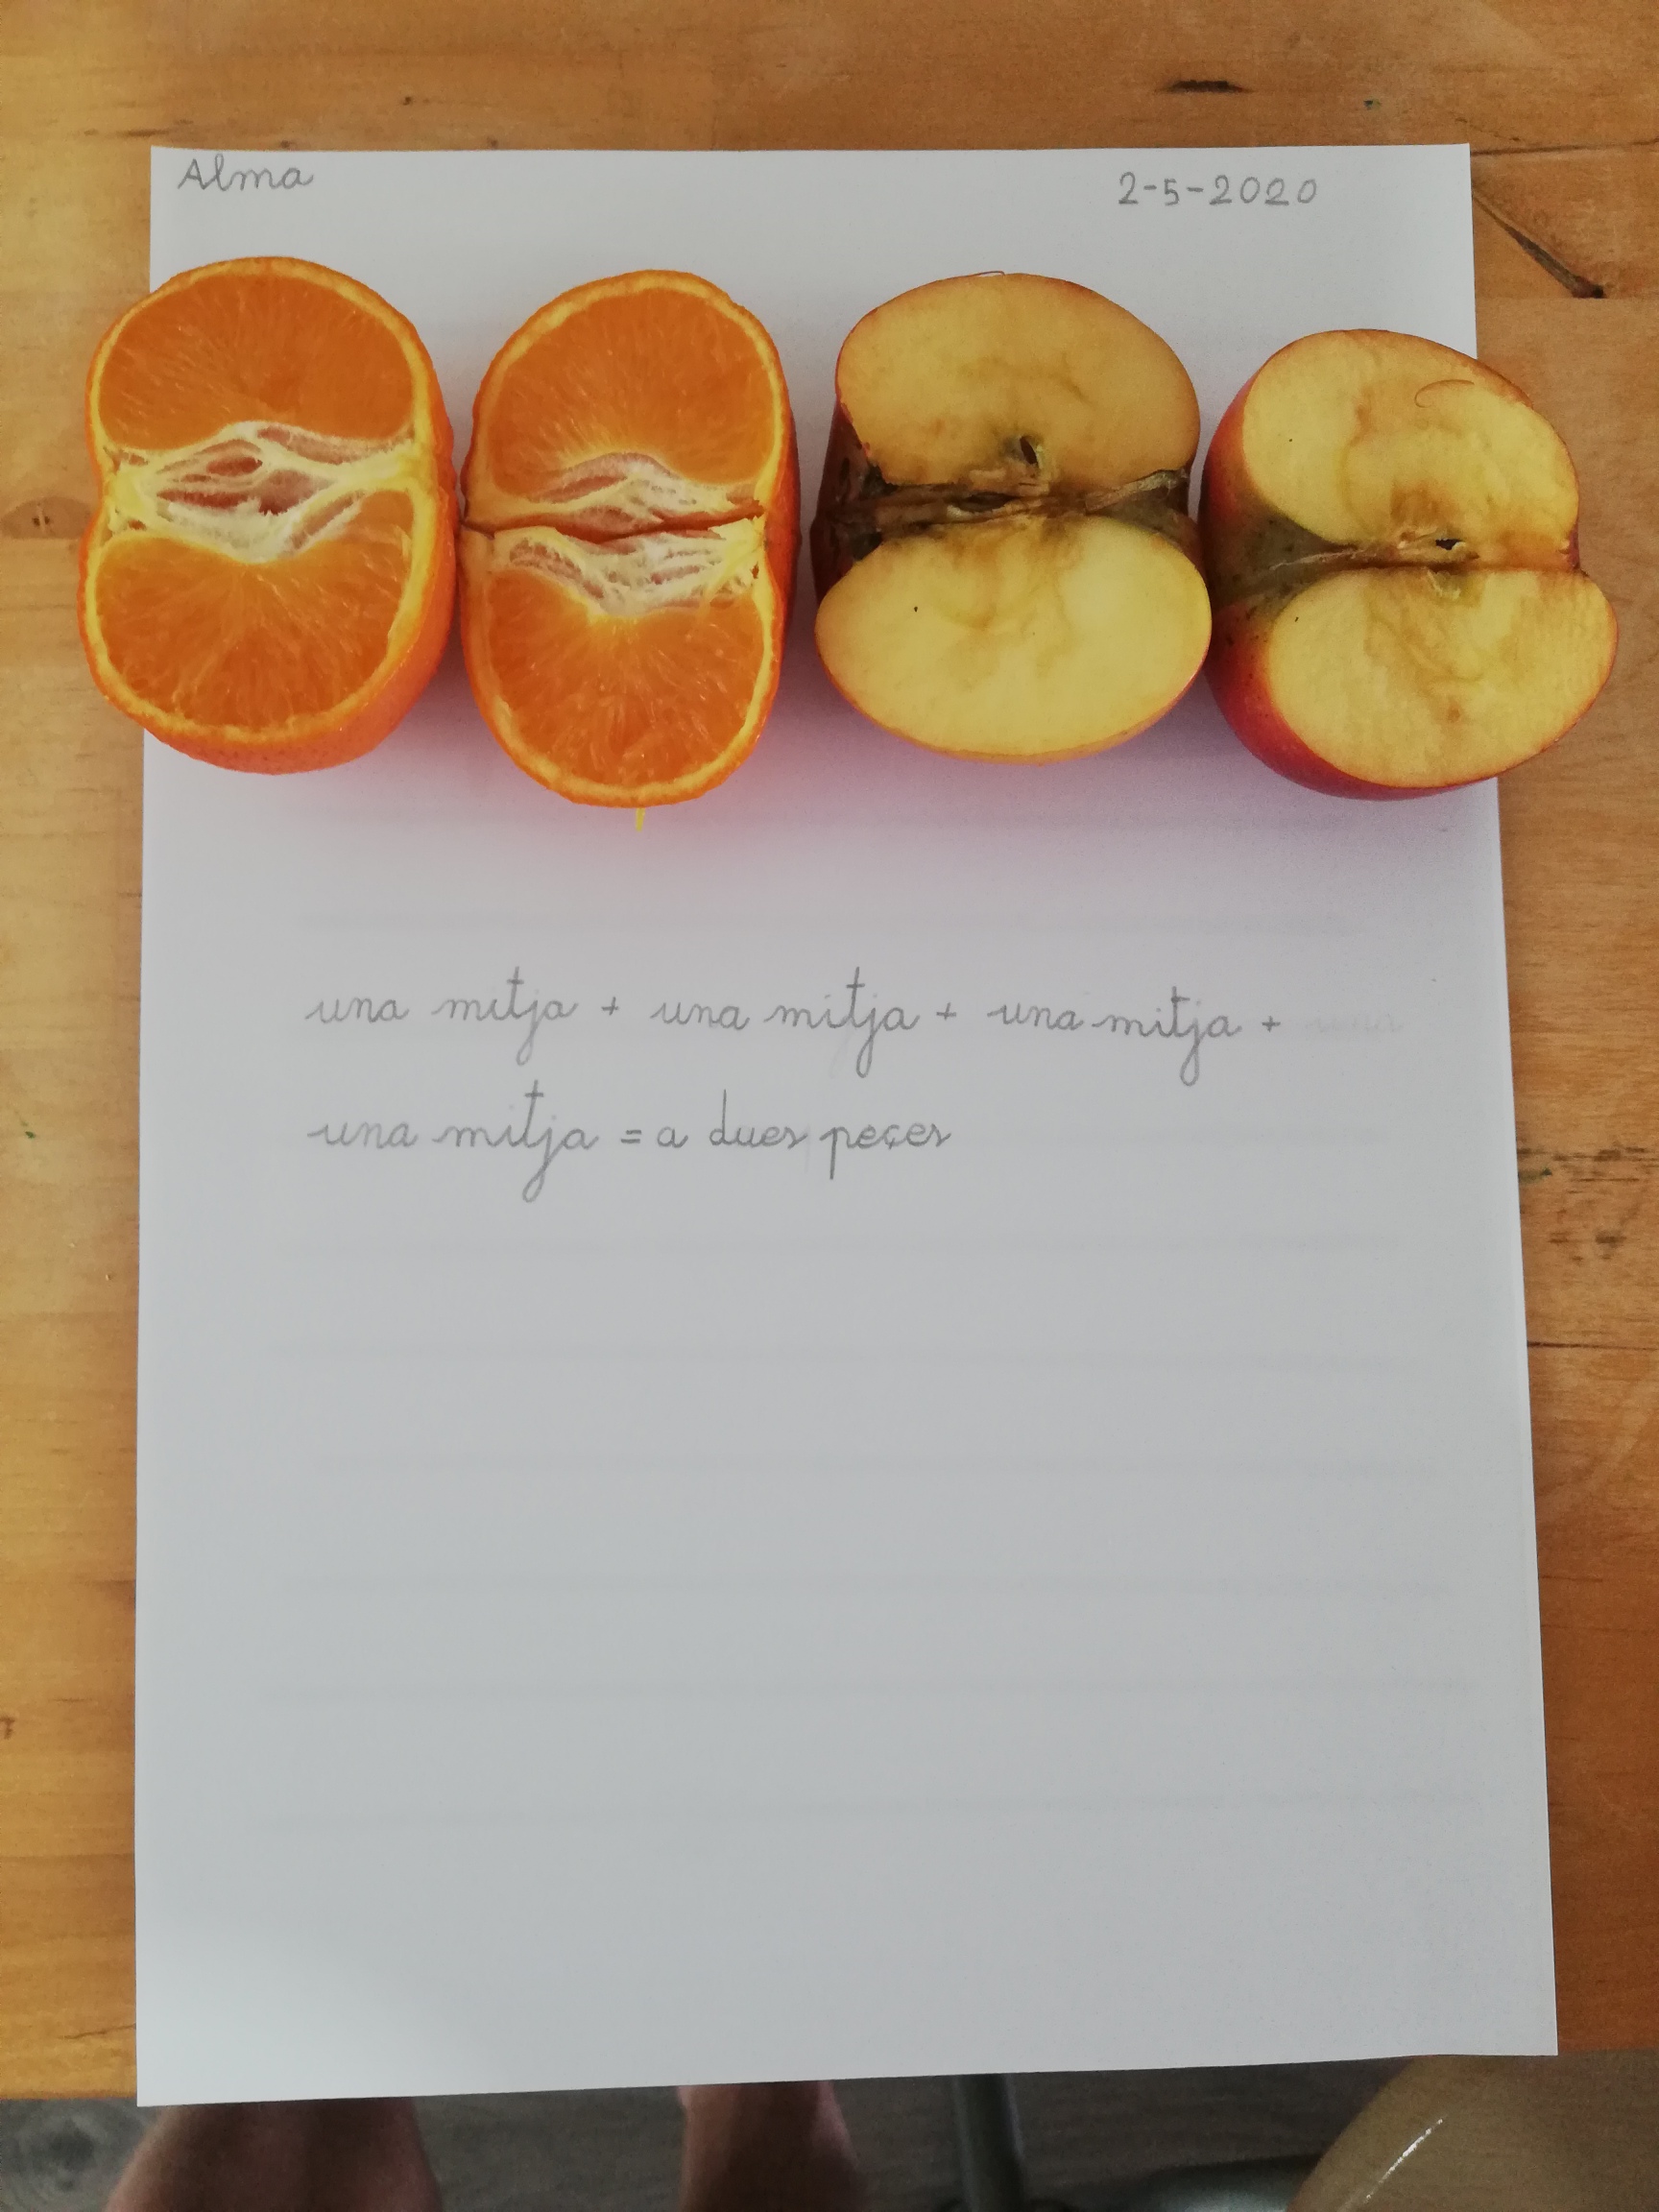 Alma
2-5-2020
una mitja + una mitja + una mitja +
una mitja = a dues peçes